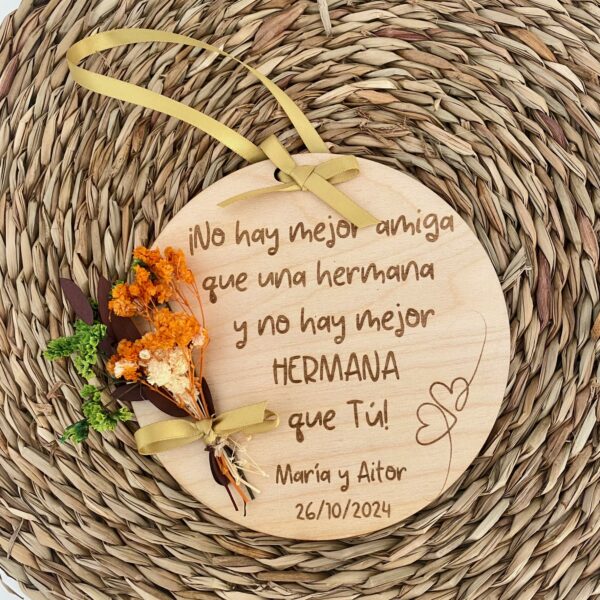 ¡No hay mejor amiga
que una hermana
y no hay mejor
HERMANA
que Tú!
María y Aitor
26/10/2024